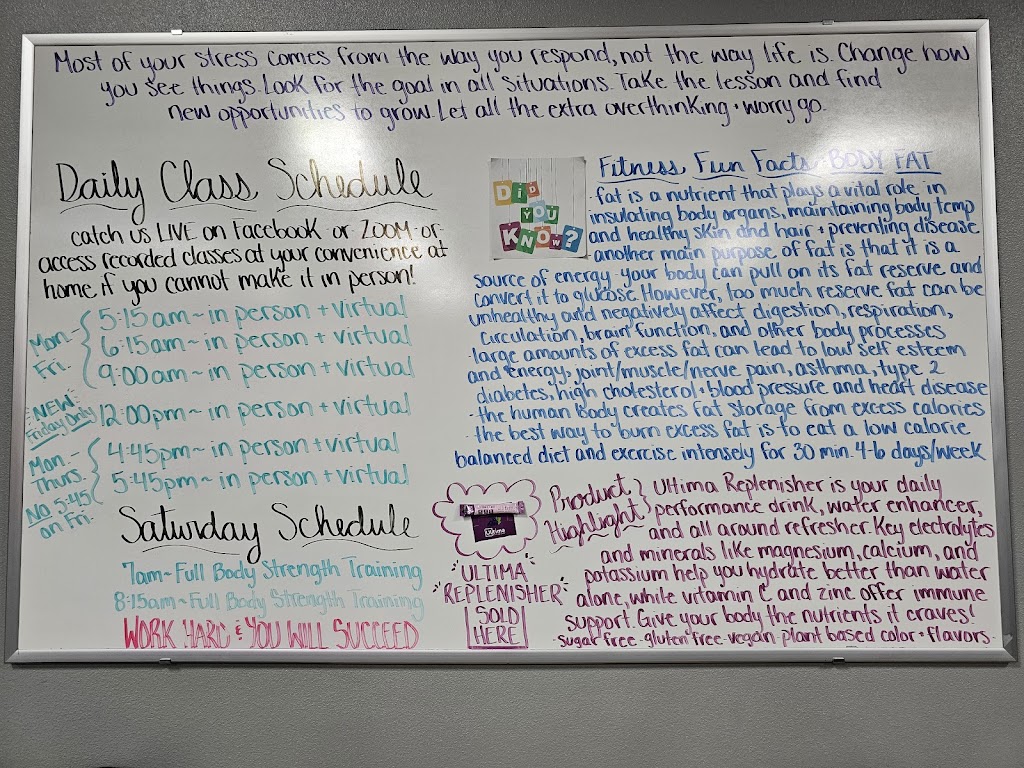 Most of your stress comes from the way you respond, not the way life is. Change how
you see things. Look for the goal in all situations. Take the lesson and find
new opportunities to grow. Let all the extra overthinking + worry go.
Daily Class Schedule
catch us LIVE on Facebook or ZOOM or
access recorded classes at your convenience at
home if you cannot make it in person!
Mon.-
Fri.
5:15am~in person + virtual
6:15am~in person + virtual
9:00am~in person + virtual
NEW
Friday Only
12:00pm~in person + virtual
Mon.-
Thurs.
No 5:45
on Fri.
4:45pm~in person + virtual
5:45pm~in person + virtual
Saturday Schedule
7am~Full Body Strength Training
8:15am~Full Body Strength Training
WORK HARD & YOU WILL SUCCEED
DiD
YOU
KNOW?
Fitness Fun Facts: BODY FAT
-fat is a nutrient that plays a vital role in
insulating body organs, maintaining body temp
and healthy skin and hair + preventing disease
-another main purpose of fat is that it is a
source of energy-your body can pull on its fat reserve and
convert it to glucose. However, too much reserve fat can be
unhealthy and negatively affect digestion, respiration,
circulation, brain function, and other body processes
-large amounts of excess fat can lead to low self esteem
and energy, joint/muscle/nerve pain, asthma, type 2
diabetes, high cholesterol + blood pressure and heart disease
-the human body creates fat storage from excess calories
-the best way to burn excess fat is to eat a low calorie
balanced diet and exercise intensely for 30 min. 4-6 days/week
Ultima
"ULTIMA
REPLENISHER"
SOLD
HERE
Product
Highlight
Ultima Replenisher is your daily
performance drink, water enhancer,
and all around refresher. Key electrolytes
and minerals like magnesium, calcium, and
potassium help you hydrate better than water
alone, while vitamin C and zinc offer immune
support. Give your body the nutrients it craves!
-sugar free-gluten free-vegan-plant based color + flavors-